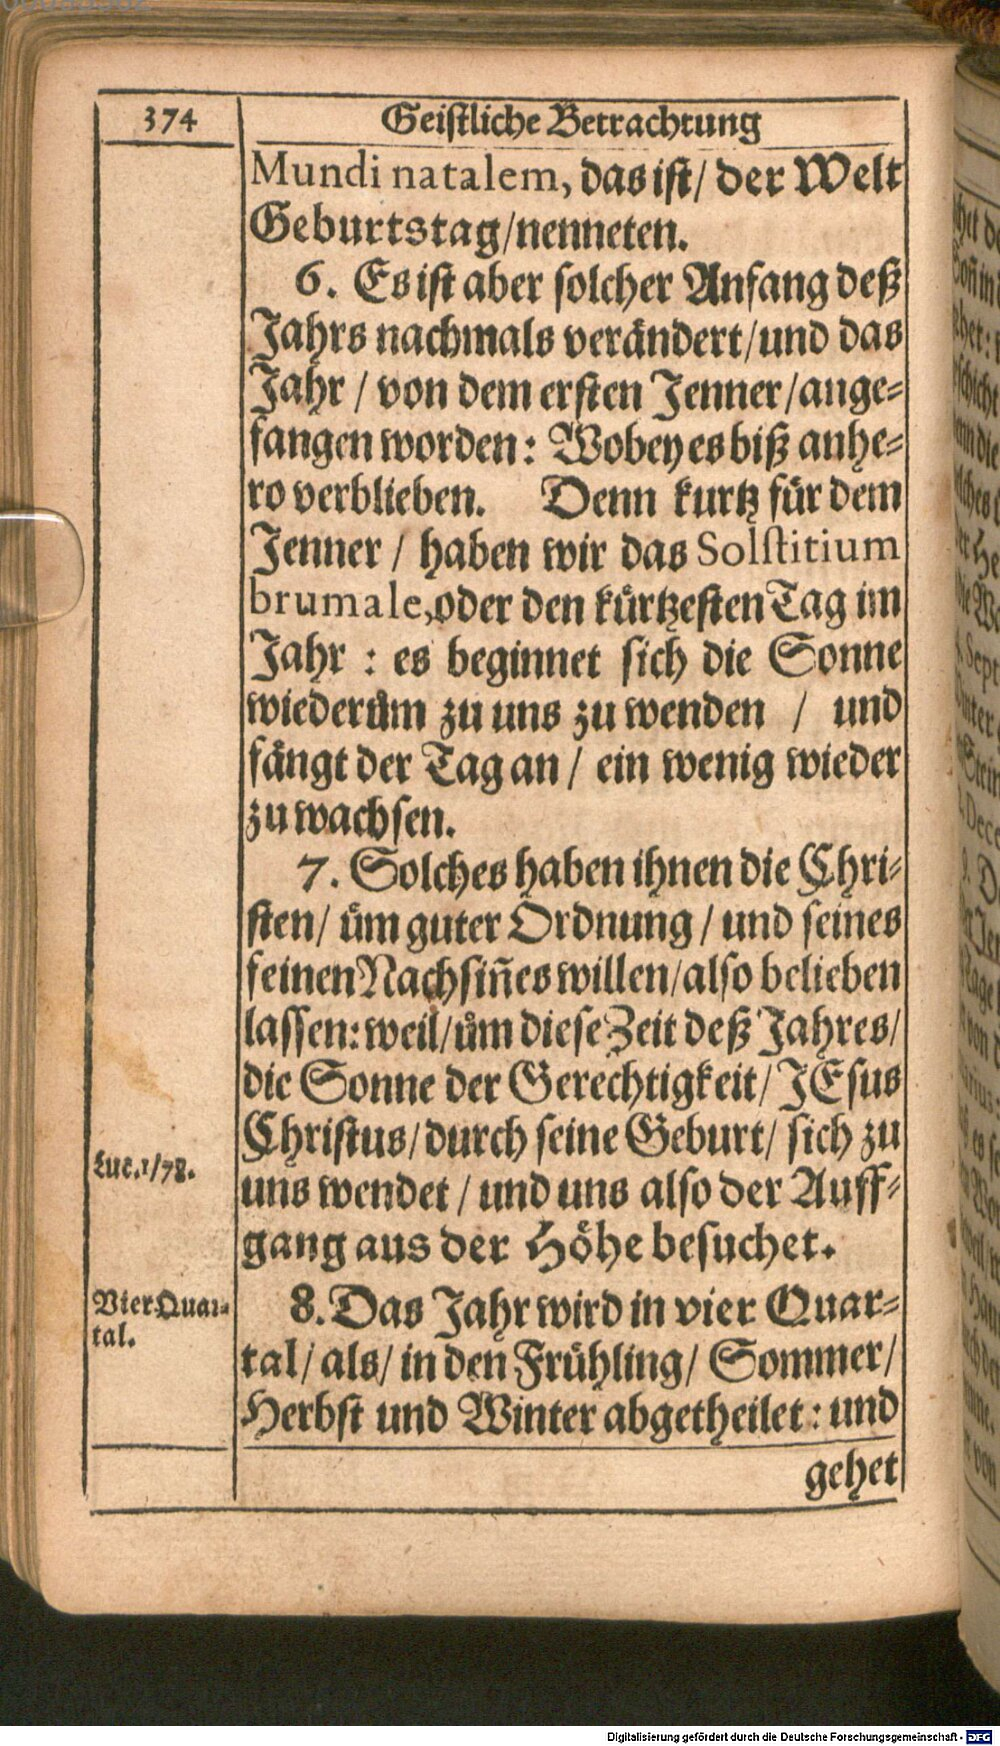 374
Geistliche Betrachtung
Mundi natalem, das ist/ der Welt
Geburtstag/nenneten.
6. Es ist aber solcher Anfang deß
Jahrs nachmals verändert/und das
Jahr / von dem ersten Jenner/ange-
fangen worden: Wobey es biß anhe-
ro verblieben. Denn kurtz für dem
Jenner / haben wir das Solstitium
brumale, oder den kürtzesten Tag im
Jahr : es beginnet sich die Sonne
wiederüm zu uns zu wenden / und
fängt der Tag an / ein wenig wieder
zu wachsen.
7. Solches haben ihnen die Chri-
sten/ üm guter Ordnung / und seines
feinen Nachsiñes willen/also belieben
lassen: weil/üm diese Zeit deß Jahres/
die Sonne der Gerechtigkeit/ JEsus
Christus/durch seine Geburt/ sich zu
Luc.1/78.
uns wendet / und uns also der Auff-
gang aus der Höhe besuchet.
Vier Quar-
tal.
8. Das Jahr wird in vier Quar-
tal/ als/ in den Frühling/ Sommer/
Herbst und Winter abgetheilet : und
gehet
Digitalisierung gefördert durch die Deutsche Forschungsgemeinschaft - DFG